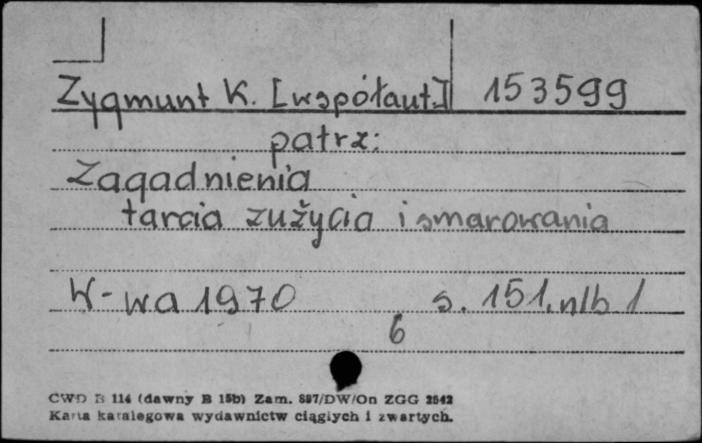 Zygmunt K. [współaut.] 153599
patrz:
Zagadnienia
tarcia zużycia i smarowania
W-wa 1970 s. 151, nlb 1
6
CWD B 114 (dawny B 15b) Zam. 897/DW/On ZGG 2542
Karta katalogowa wydawnictw ciągłych i zwartych.